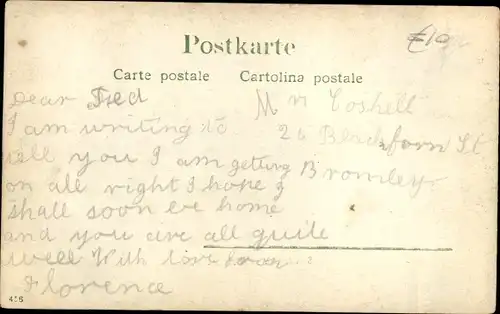 Postkarte
£10
Carte postale Cartolina postale
Dear Fred
I am writing to
tell you I am getting
on all right I hope I
shall soon be home
and you are all quite
well With love from
Florence
Mr Coshell
26 St
Bromley
456